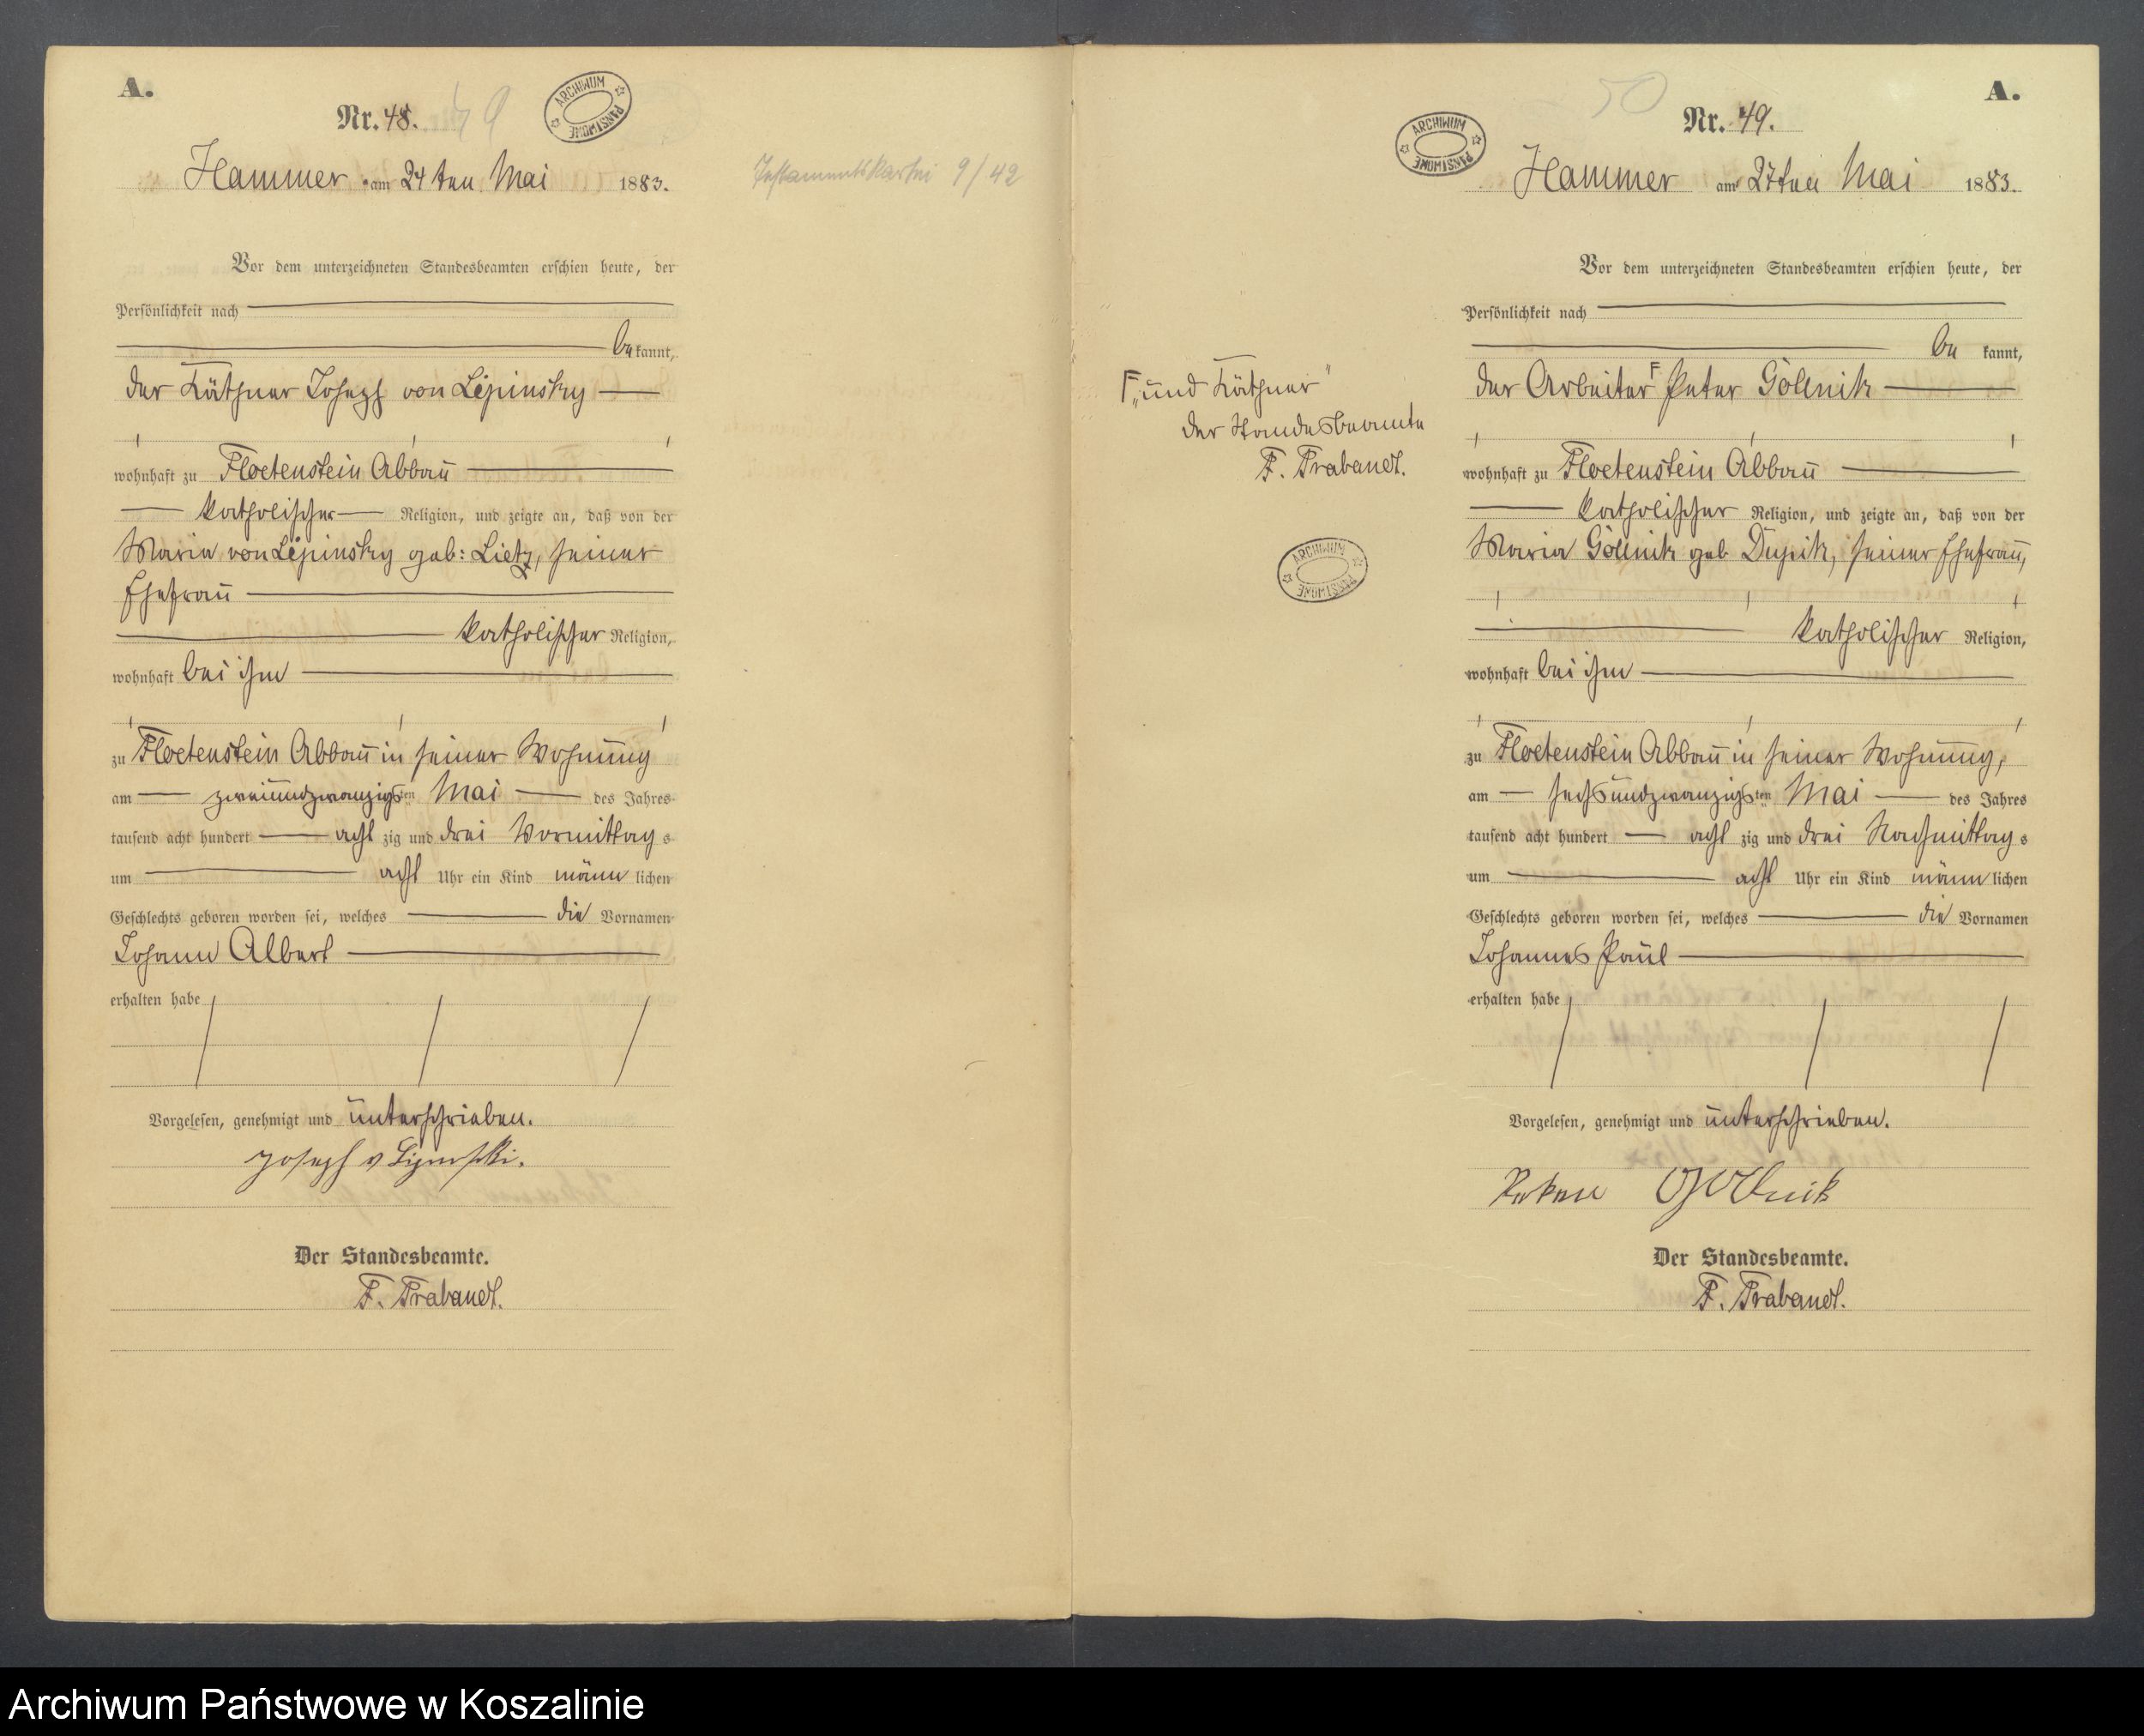 A.
Nr. 48. 49
ARCHIWUM PAŃSTWOWE
Hammer am 24ten Mai 1883.
Testamentskartei 9/42
Vor dem unterzeichneten Standesbeamten erschien heute, der
Persönlichkeit nach
bekannt,
der Käthner Joseph von Lepinsky
wohnhaft zu Floetenstein Abbau
katholischer Religion, und zeigte an, daß von der
Maria von Lepinsky geb: Lietz, seiner
Ehefrau
katholischer Religion,
wohnhaft bei ihm
zu Floetenstein Abbau in seiner Wohnung
am zweiundzwanzigsten Mai des Jahres
tausend acht hundert acht zig und drei Vormittags
um acht Uhr ein Kind männlichen
Geschlechts geboren worden sei, welches die Vornamen
Johann Albert
erhalten habe
Vorgelesen, genehmigt und unterschrieben.
Joseph v Lipinski.
Der Standesbeamte.
F. Trabandt.
A.
50
Nr. 49.
ARCHIWUM PAŃSTWOWE
Hammer am 27ten Mai 1883.
Vor dem unterzeichneten Standesbeamten erschien heute, der
Persönlichkeit nach
bekannt,
der Arbeiter F Peter Gollnik
F „und Käthner"
der Standesbeamte
F. Trabandt.
ARCHIWUM PAŃSTWOWE
wohnhaft zu Floetenstein Abbau
katholischer Religion, und zeigte an, daß von der
Maria Gollnik geb Dupik, seiner Ehefrau,
katholischer Religion,
wohnhaft bei ihm
zu Floetenstein Abbau in seiner Wohnung,
am sechsundzwanzigsten Mai des Jahres
tausend acht hundert acht zig und drei Nachmittags
um acht Uhr ein Kind männlichen
Geschlechts geboren worden sei, welches die Vornamen
Johannes Paul
erhalten habe
Vorgelesen, genehmigt und unterschrieben.
Gollnik
Der Standesbeamte.
F. Trabandt.
Archiwum Państwowe w Koszalinie